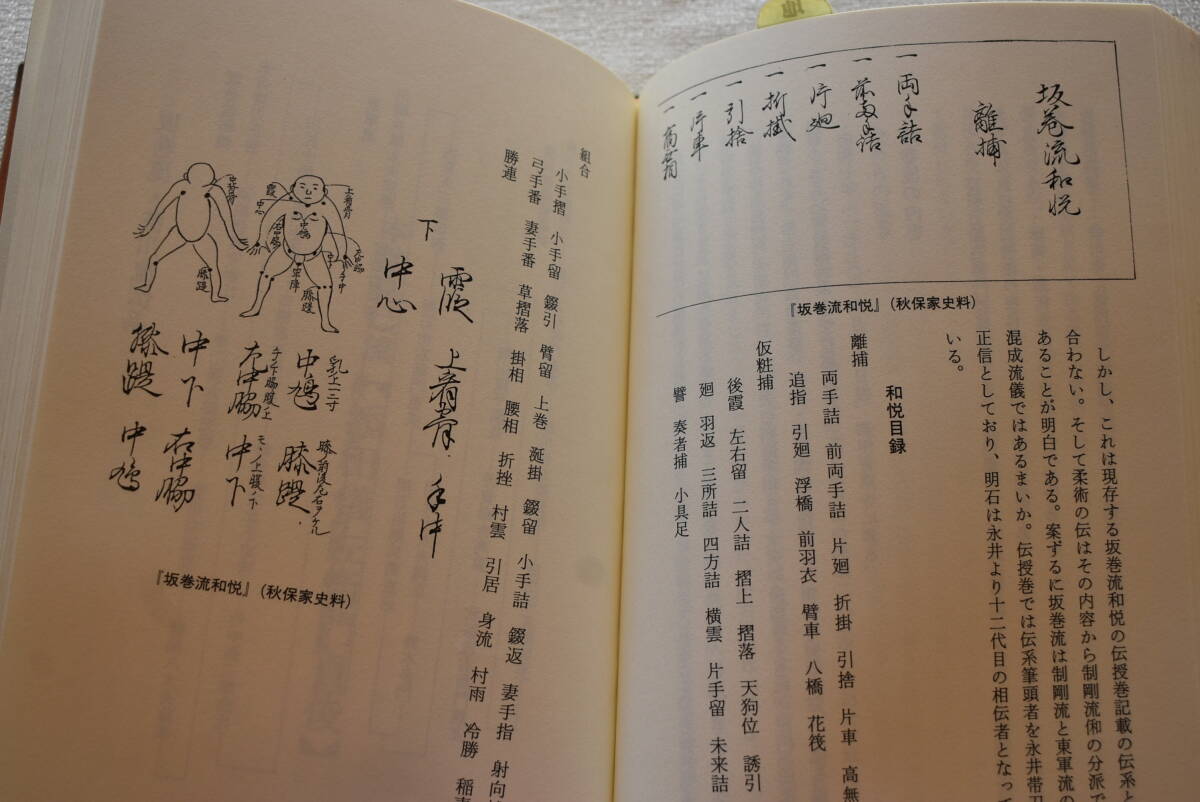 坂巻流和悦
離捕
一 両手詰
一 前両手詰
一 片廻
一 折掛
一 引捨
一 片車
『坂巻流和悦』（秋保家史料）
しかし、これは現存する坂巻流和悦の伝授巻記載の伝系と
合わない。そして柔術の伝はその内容から制剛流俰の分派で
あることが明白である。案ずるに坂巻流は制剛流と東軍流の
混成流儀ではあるまいか。伝授巻では伝系筆頭者を永井帯刀
正信としており、明石は永井より十二代目の相伝者となって
いる。
和悦目録
離捕
両手詰 前両手詰 片廻 折掛 引捨 片車 高無
追指 引廻 浮橋 前羽衣 臂車 八橋 花筏
仮粧捕
後霞 左右留 二人詰 摺上 摺落 天狗位 誘引
廻 羽返 三所詰 四方詰 横雲 片手留 未来詰
譬 奏者捕 小具足
組合
小手摺 小手留 錣引 臂留 上巻 涎掛 錣留 小手詰 錣返 妻手指 射向
弓手番 妻手番 草摺落 掛相 腰相 折挫 村雲 引居 身流 村雨 冷勝 稲
勝連
下
霞 上肩骨 手中
中心
乳上二寸
中鳩 膝蹉
右中脇 中下
中下 右中脇
膝蹉 中鳩
『坂巻流和悦』（秋保家史料）